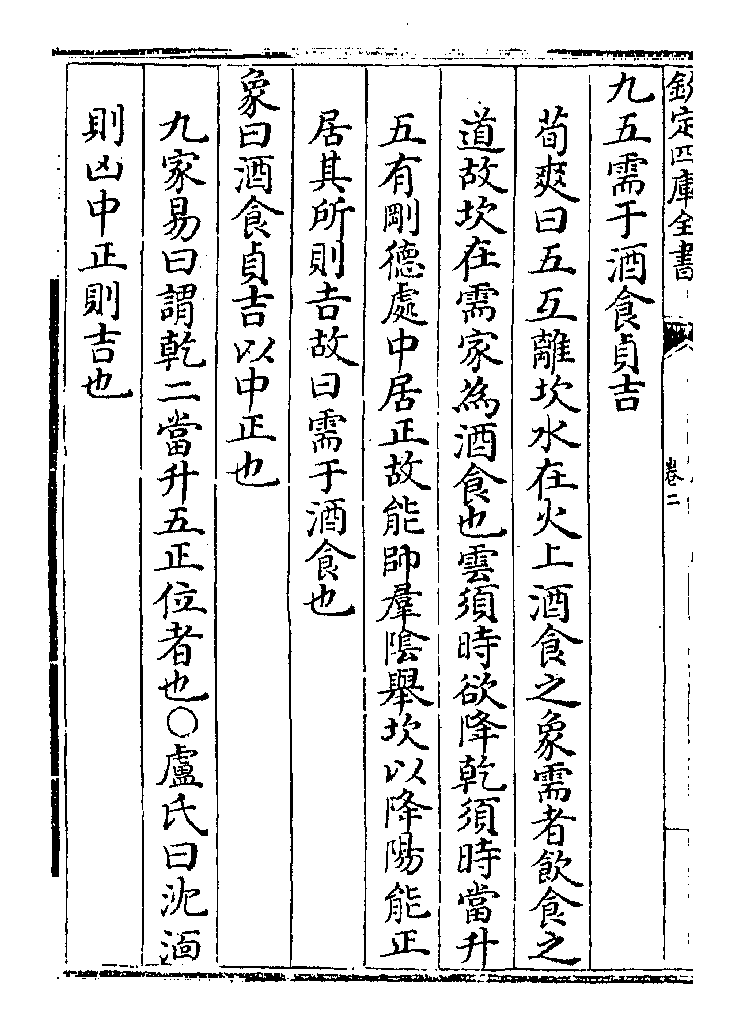 欽定四庫全書
卷二
九五需于酒食貞吉
荀爽曰五互離坎水在火上酒食之象需者飲食之
道故坎在需家為酒食也雲須時欲降乾須時當升
五有剛德處中居正故能帥羣陰舉坎以降陽能正
居其所則吉故曰需于酒食也
象曰酒食貞吉以中正也
九家易曰謂乾二當升五正位者也○盧氏曰沈湎
則凶中正則吉也